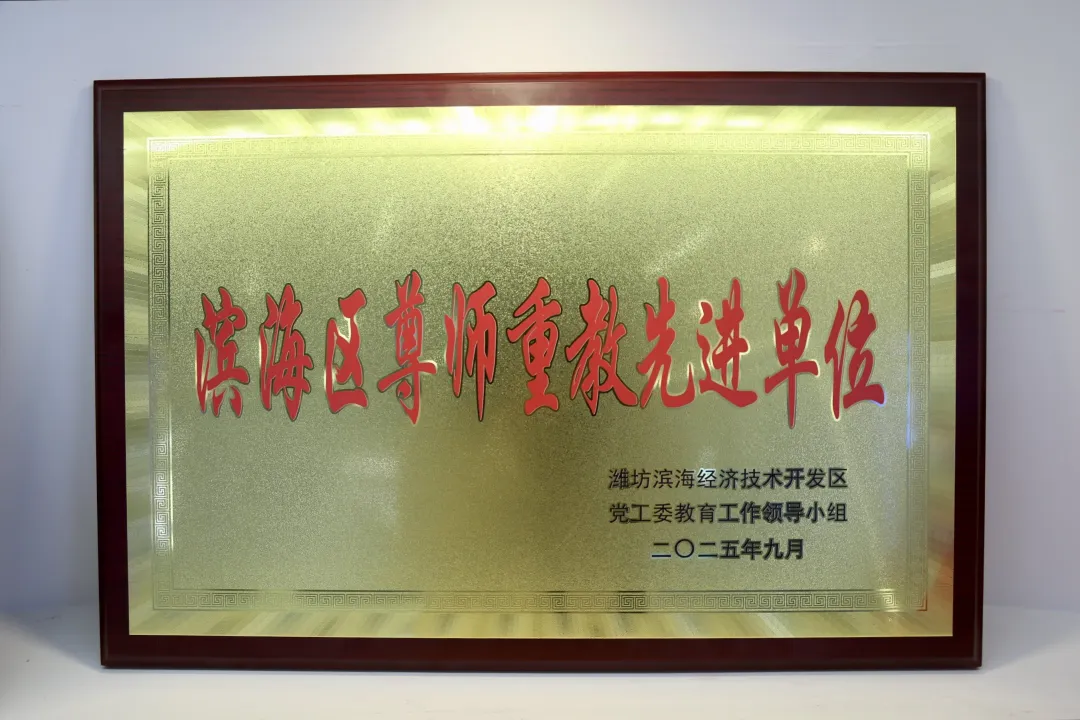 滨海区尊师重教先进单位
潍坊滨海经济技术开发区
党工委教育工作领导小组
二〇二五年九月